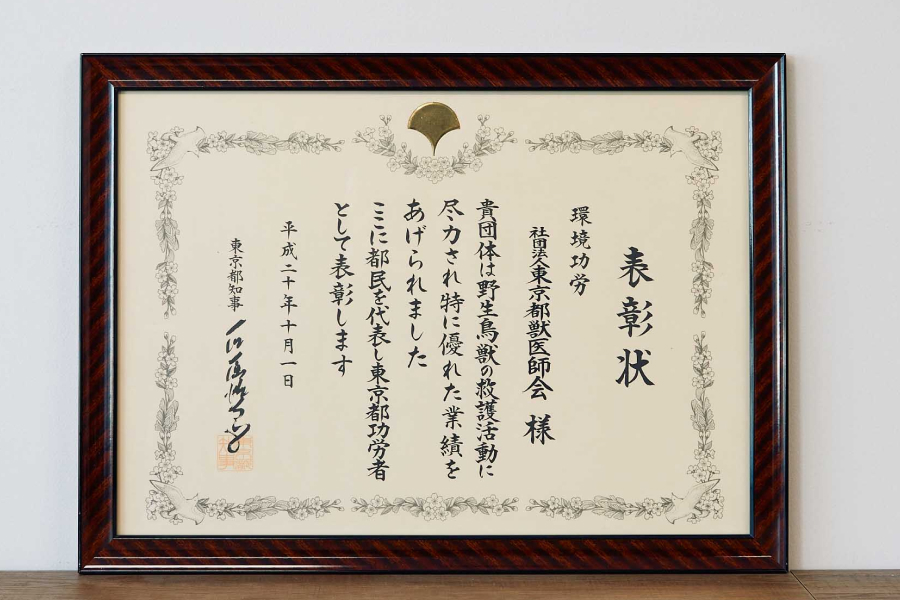 表彰状
環境功労
社団法人東京都獣医師会 様
貴団体は野生鳥獣の救護活動に
尽力され特に優れた業績を
あげられました
ここに都民を代表し東京都功労者
として表彰します
平成二十年十月一日
東京都知事 石原慎太郎